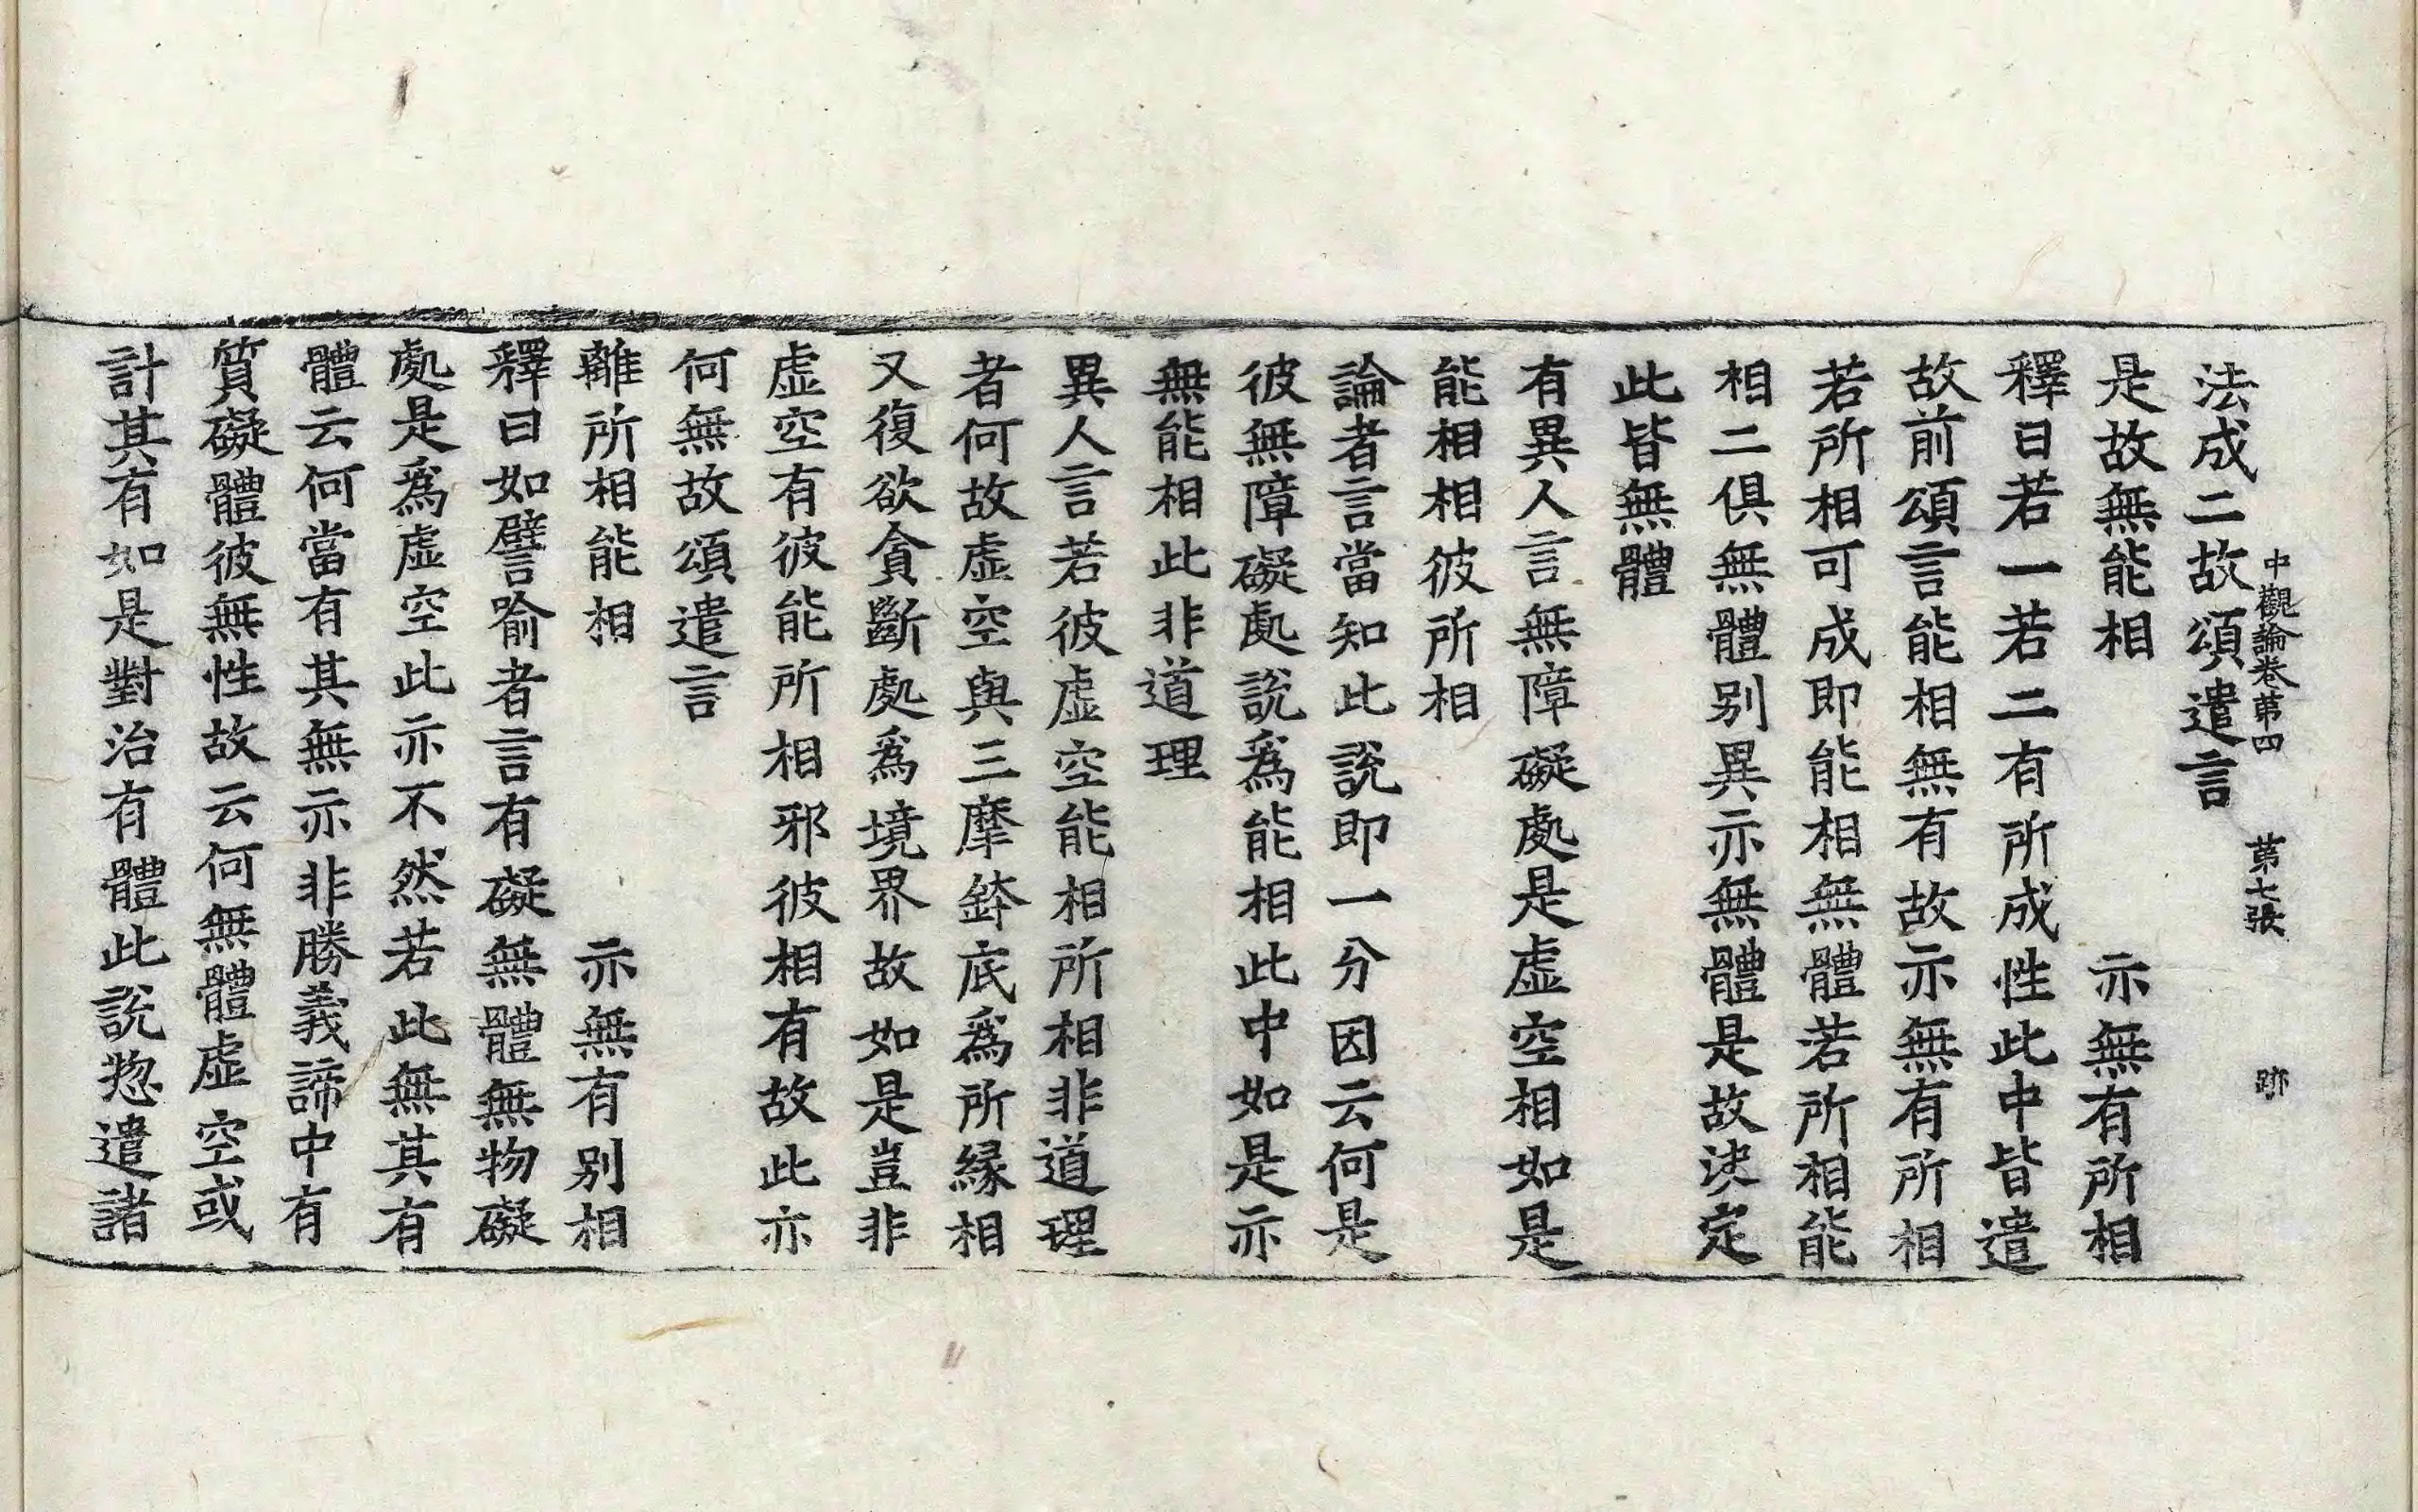 中觀論卷第四　第七張　跡
法成二故頌遣言
是故無能相　亦無有所相
釋曰若一若二有所成性此中皆遣
故前頌言能相無有故亦無有所相
若所相可成即能相無體若所相能
相二俱無體别異亦無體是故決定
此皆無體
有異人言無障礙處是虛空相如是
能相相彼所相
論者言當知此說即一分因云何是
彼無障礙處說爲能相此中如是亦
無能相此非道理
異人言若彼虛空能相所相非道理
者何故虛空與三摩鉢底爲所緣相
又復欲貪斷處爲境界故如是豈非
虛空有彼能所相邪彼相有故此亦
何無故頌遣言
離所相能相　亦無有别相
釋曰如譬喻者言有礙無體無物礙
處是爲虛空此亦不然若此無其有
體云何當有其無亦非勝義諦中有
質礙體彼無性故云何無體虛空或
計其有如是對治有體此說惣遣諸